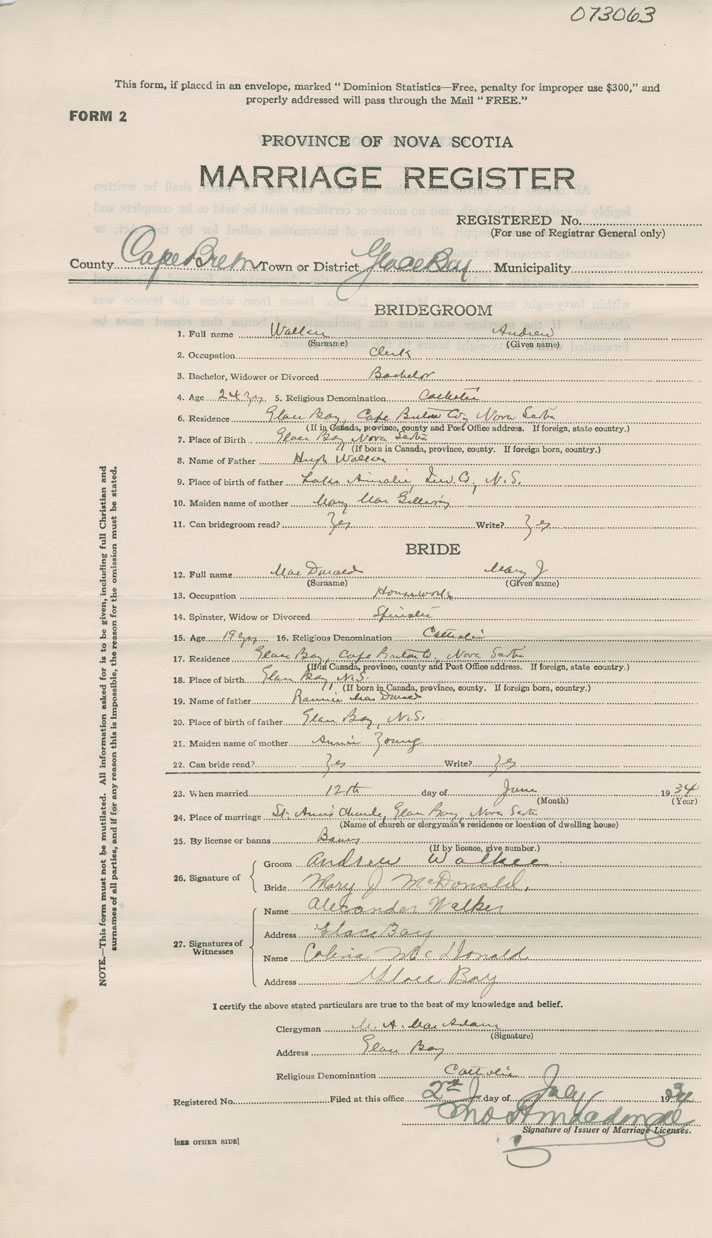 073063
This form, if placed in an envelope, marked "Dominion Statistics—Free, penalty for improper use $300," and
properly addressed will pass through the Mail "FREE."
FORM 2
PROVINCE OF NOVA SCOTIA
MARRIAGE REGISTER
REGISTERED No.
(For use of Registrar General only)
County Cape Breton Town or District Glace Bay Municipality
BRIDEGROOM
1. Full name Walker Andrew
(Surname) (Given name)
2. Occupation Clerk
3. Bachelor, Widower or Divorced Bachelor
4. Age 24 yrs 5. Religious Denomination Catholic
6. Residence Glace Bay, Cape Breton Co, Nova Scotia
(If in Canada, province, county and Post Office address. If foreign, state country.)
7. Place of Birth Glace Bay Nova Scotia
(If born in Canada, province, county. If foreign born, country.)
8. Name of Father Hugh Walker
9. Place of birth of father Lake Ainslie, Inv. Co, N.S.
10. Maiden name of mother Mary MacGillivray
11. Can bridegroom read? Yes Write? Yes
BRIDE
12. Full name MacDonald Mary J
(Surname) (Given name)
13. Occupation Housework
14. Spinster, Widow or Divorced Spinster
15. Age 19 yrs 16. Religious Denomination Catholic
17. Residence Glace Bay, Cape Breton Co, Nova Scotia
(If in Canada, province, county and Post Office address. If foreign, state country.)
18. Place of birth Glace Bay, N.S.
(If born in Canada, province, county. If foreign born, country.)
19. Name of father Rannie MacDonald
20. Place of birth of father Glace Bay, N.S.
21. Maiden name of mother Annie Young
22. Can bride read? Yes Write? Yes
23. When married 12th day of June 1934
(Month) (Year)
24. Place of marriage St. Ann's Church, Glace Bay, Nova Scotia
(Name of church or clergyman's residence or location of dwelling house)
25. By license or banns Banns
(If by licence, give number.)
26. Signature of
Groom Andrew Walker
Bride Mary J McDonald.
27. Signatures of Witnesses
Name Alexander Walker
Address Glace Bay
Name McDonald
Address Glace Bay
I certify the above stated particulars are true to the best of my knowledge and belief.
Clergyman A. MacAdam
(Signature)
Address Glace Bay
Religious Denomination Catholic
Registered No. Filed at this office 2nd day of July 1934
Macdonald
Signature of Issuer of Marriage Licenses.
[SEE OTHER SIDE]
NOTE.—This form must not be mutilated. All information asked for is to be given, including full Christian and
surnames of all parties, and if for any reason this is impossible, the reason for the omission must be stated.